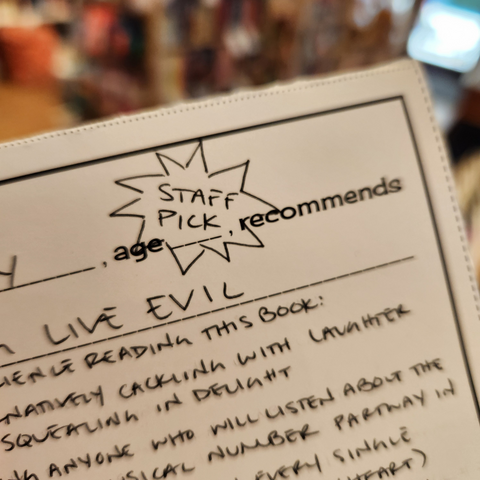 STAFF
PICK
Y, age ____, recommends
LIVE EVIL
IENCE READING THIS BOOK:
NATIVELY CACKLING WITH LAUGHTER
SQUEALING IN DELIGHT
ANYONE WHO WILL LISTEN ABOUT THE
USICAL NUMBER PARTWAY IN
EVERY SINGLE
HEART)